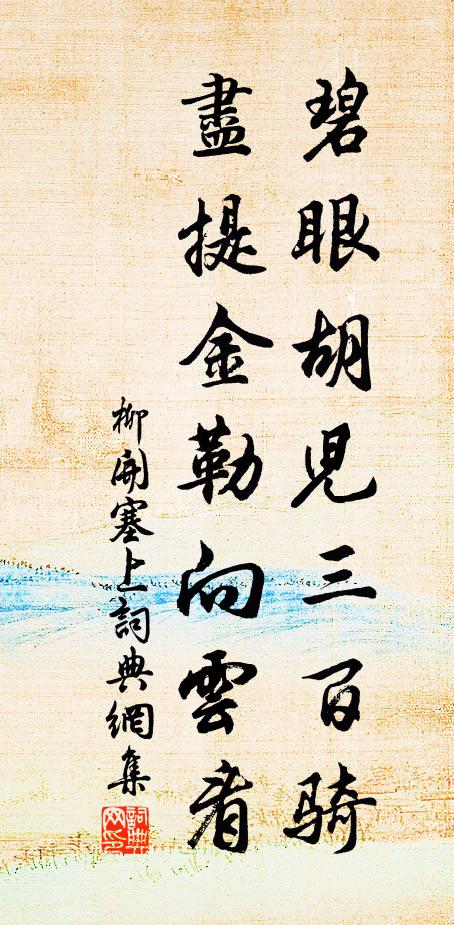 碧眼胡児三百騎
盡提金勒向雲看
柳開塞上詞典網集
詞典网印